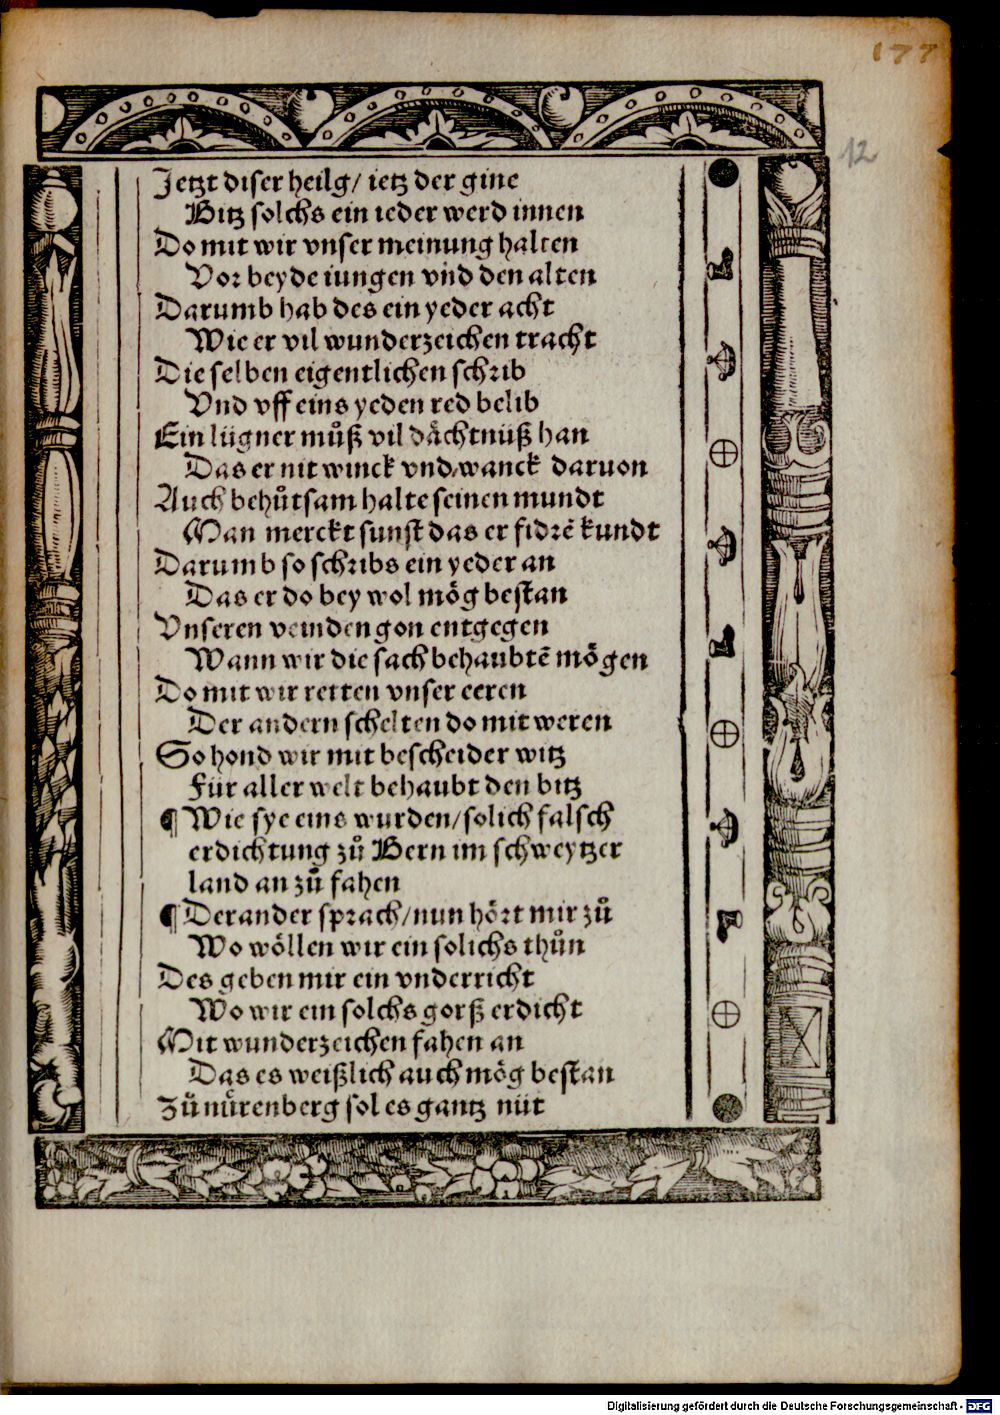 177
12
Jetzt diser heilg/ ietz der gine
Bitz solchs ein ieder werd innen
Do mit wir vnser meinung halten
Vor beyde iungen vnd den alten
Darumb hab des ein yeder acht
Wie er vil wunderzeichen tracht
Die selben eigentlichen schrib
Vnd vff eins yeden red belib
Ein lügner můß vil dächtnüß han
Das er nit winck vnd wanck daruon
Auch behůtsam halte seinen mundt
Man merckt sunst das er fidrē kundt
Darumb so schribs ein yeder an
Das er do bey wol mög bestan
Vnseren veinden gon entgegen
Wann wir die sach behaubtē mögen
Do mit wir retten vnser eeren
Der andern schelten do mit weren
So hond wir mit bescheider witz
Für aller welt behaubt den bitz
¶ Wie sye eins wurden/solich falsch
erdichtung zů Bern im schweytzer
land an zů fahen
¶ Der ander sprach/nun hört mir zů
Wo wöllen wir ein solichs thůn
Des geben mir ein vnderricht
Wo wir ein solchs gorß erdicht
Mit wunderzeichen fahen an
Das es weißlich auch mög bestan
Zů nürenberg sol es gantz nüt
Digitalisierung gefördert durch die Deutsche Forschungsgemeinschaft - DFG